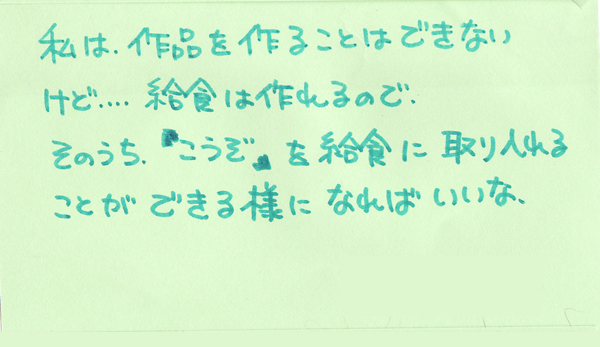 私は、作品を作ることはできない
けど.... 給食は作れるので、
そのうち、『こうぞ』を給食に取り入れる
ことができる様になればいいな、